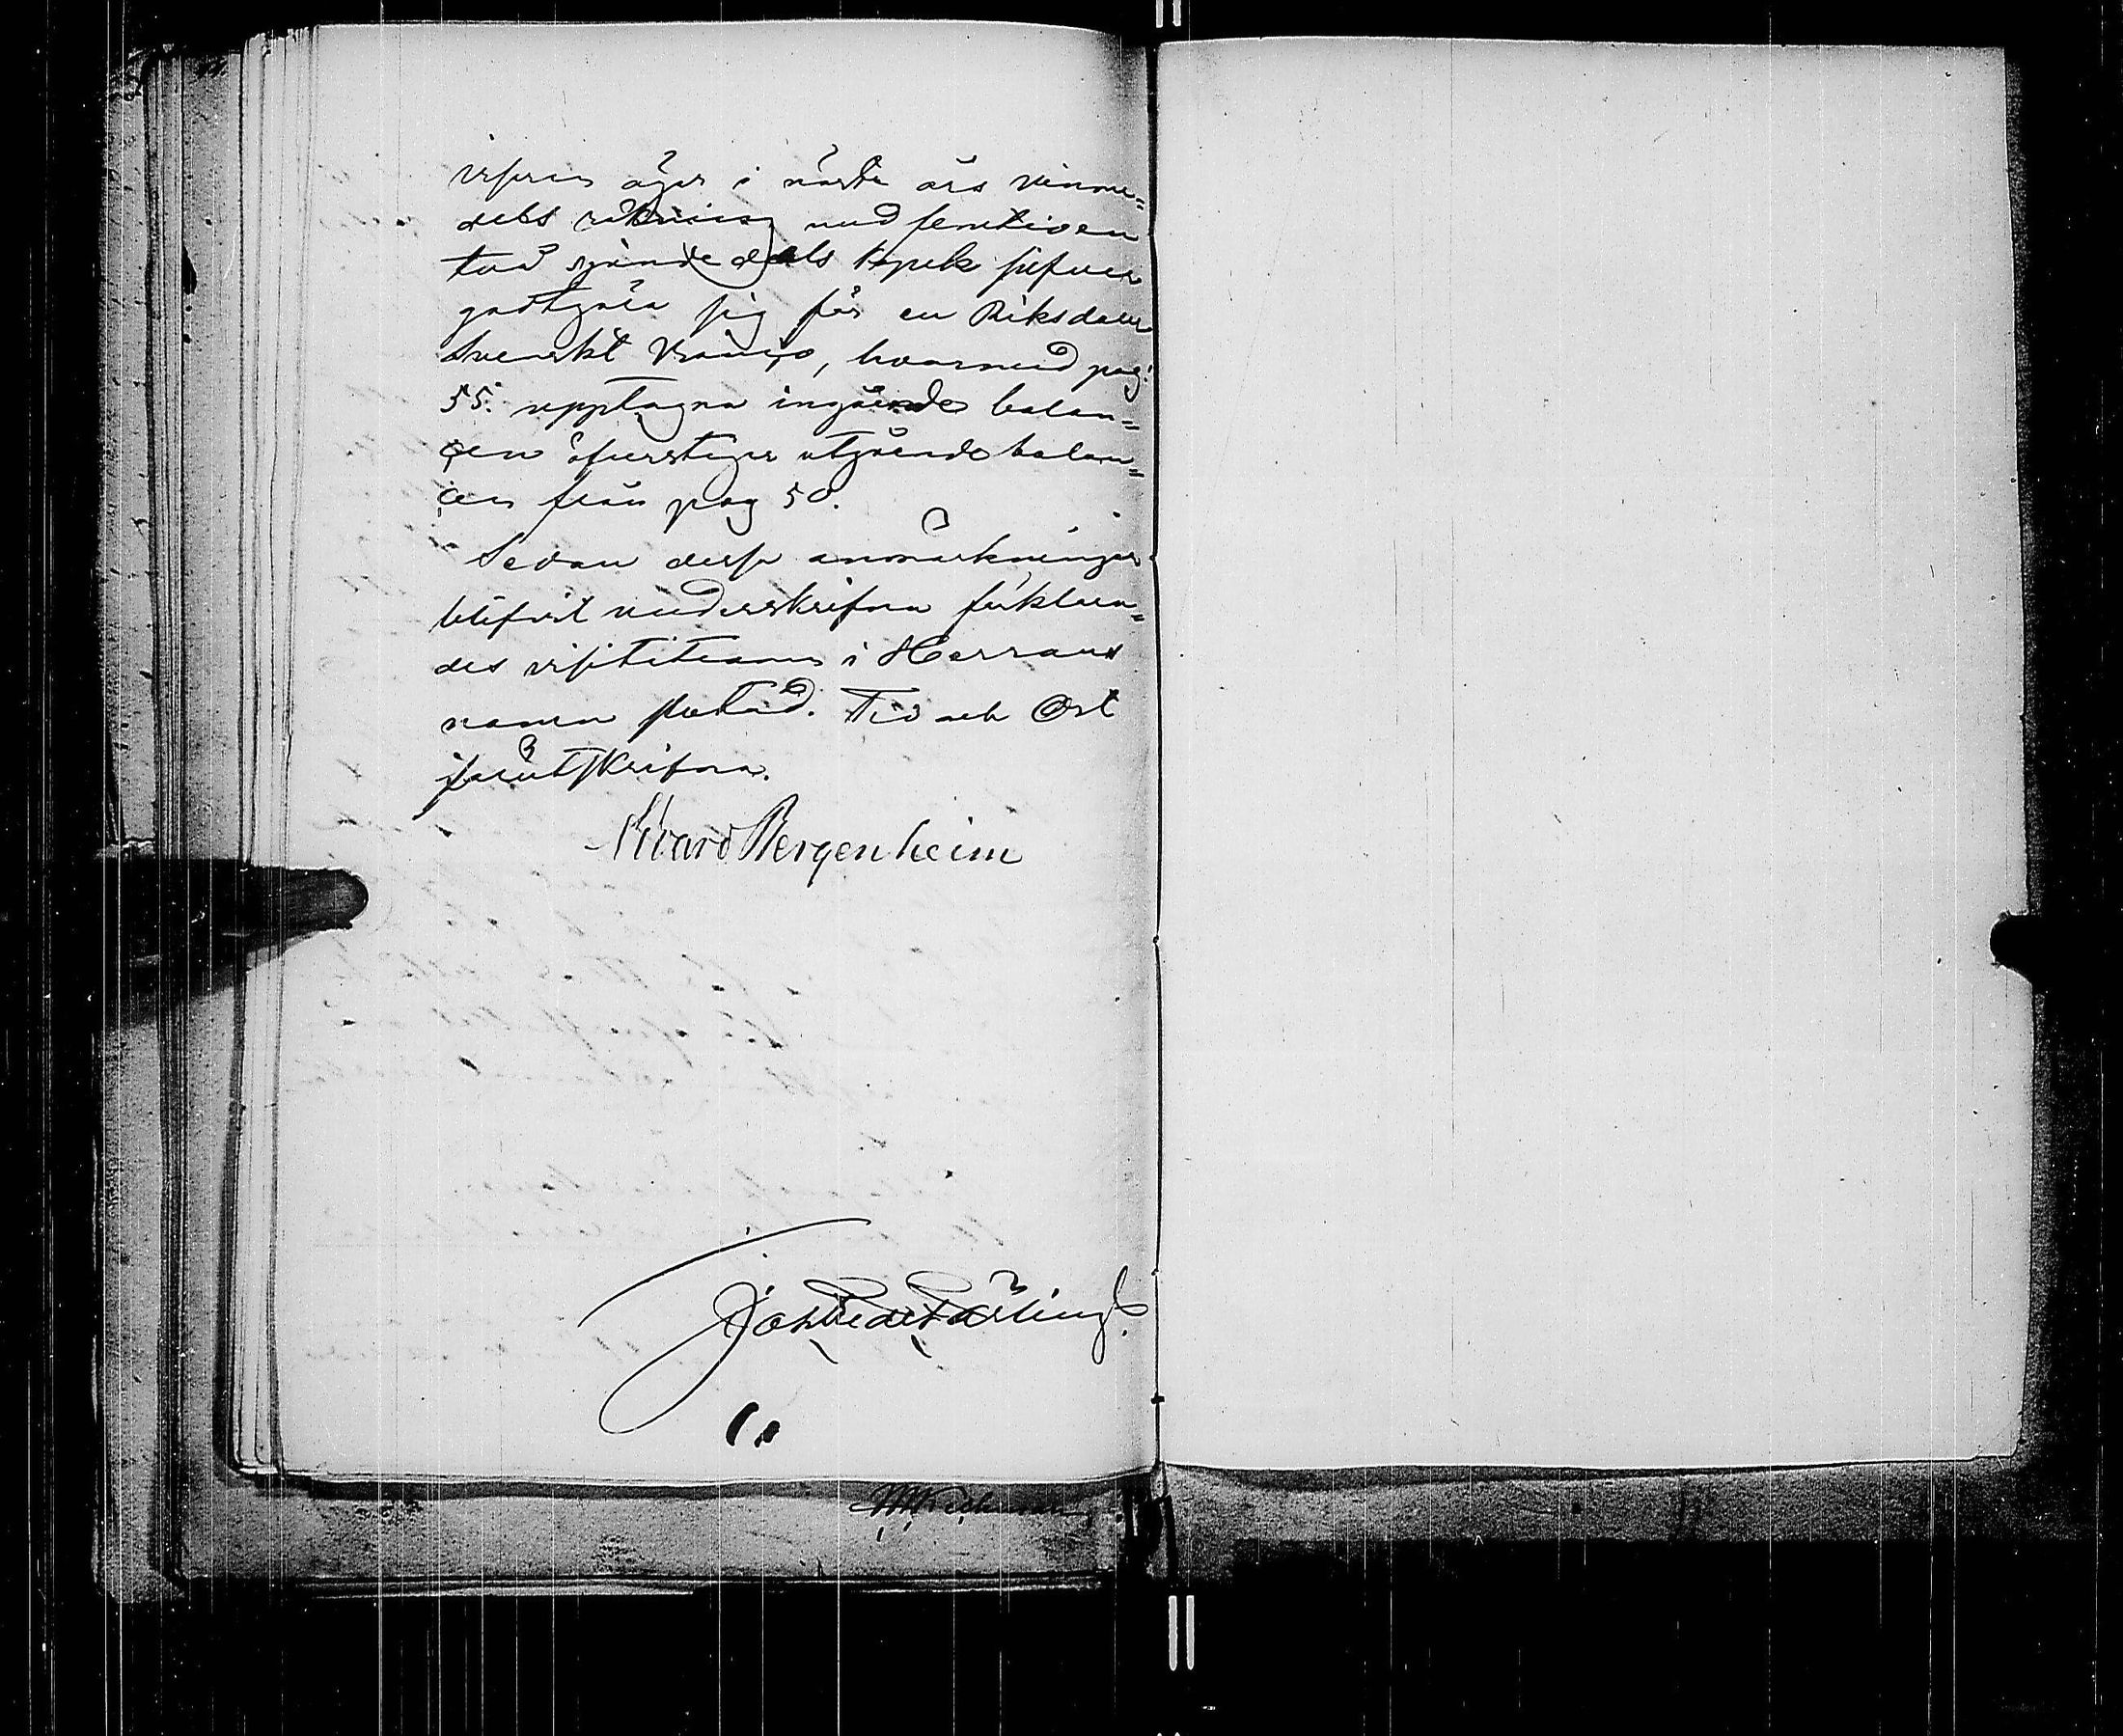 visorn äger i nästa års vinme=
dels räkning med femtioen
två sjunde dels kopek silfver
godtgöra sig för en Riksdaler
Svenskt Banco, hvarmed pag:
55. upptagna ingående balan=
cen öfverstiger utgående balan=
cen från pag 50.
Sedan dessa anmärkningar
blifvit underskrifna förklara=
des visititionen i Herrans
namn slutad. Tid och Ort
förutskrifna.
Edvard Bergenheim